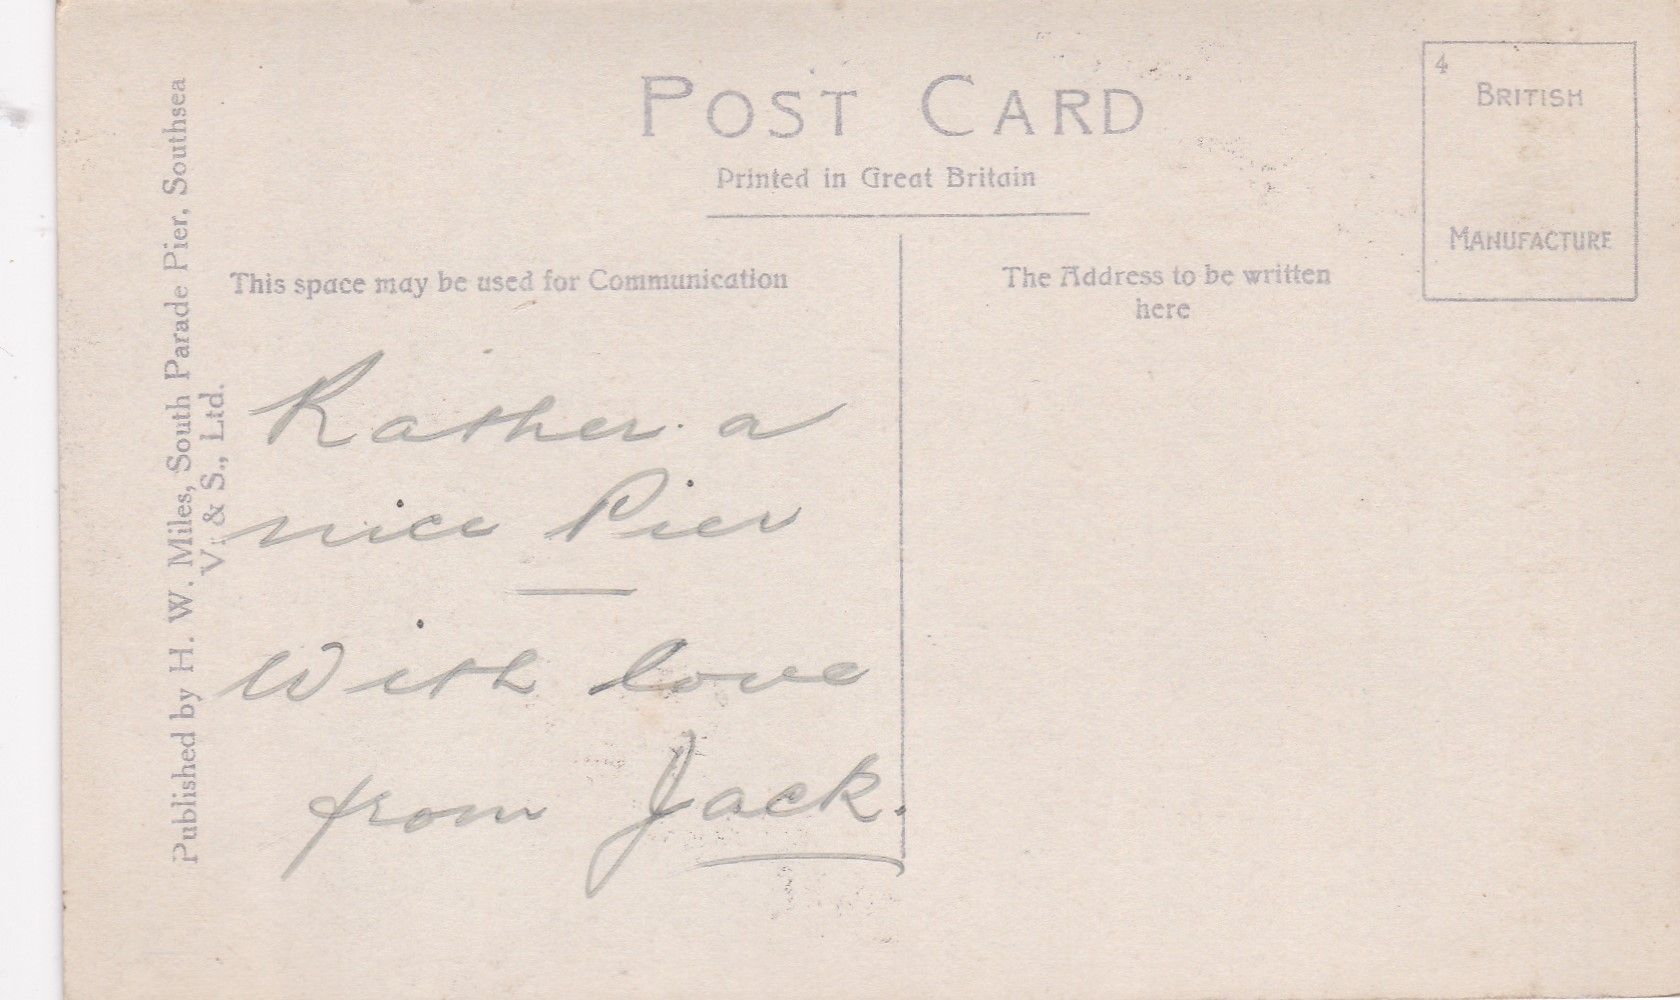 POST CARD
Printed in Great Britain
4
BRITISH
MANUFACTURE
This space may be used for Communication
The Address to be written
here
Rather a
nice Pier
With love
from Jack.
Published by H. W. Miles, South Parade Pier, Southsea
V. & S., Ltd.